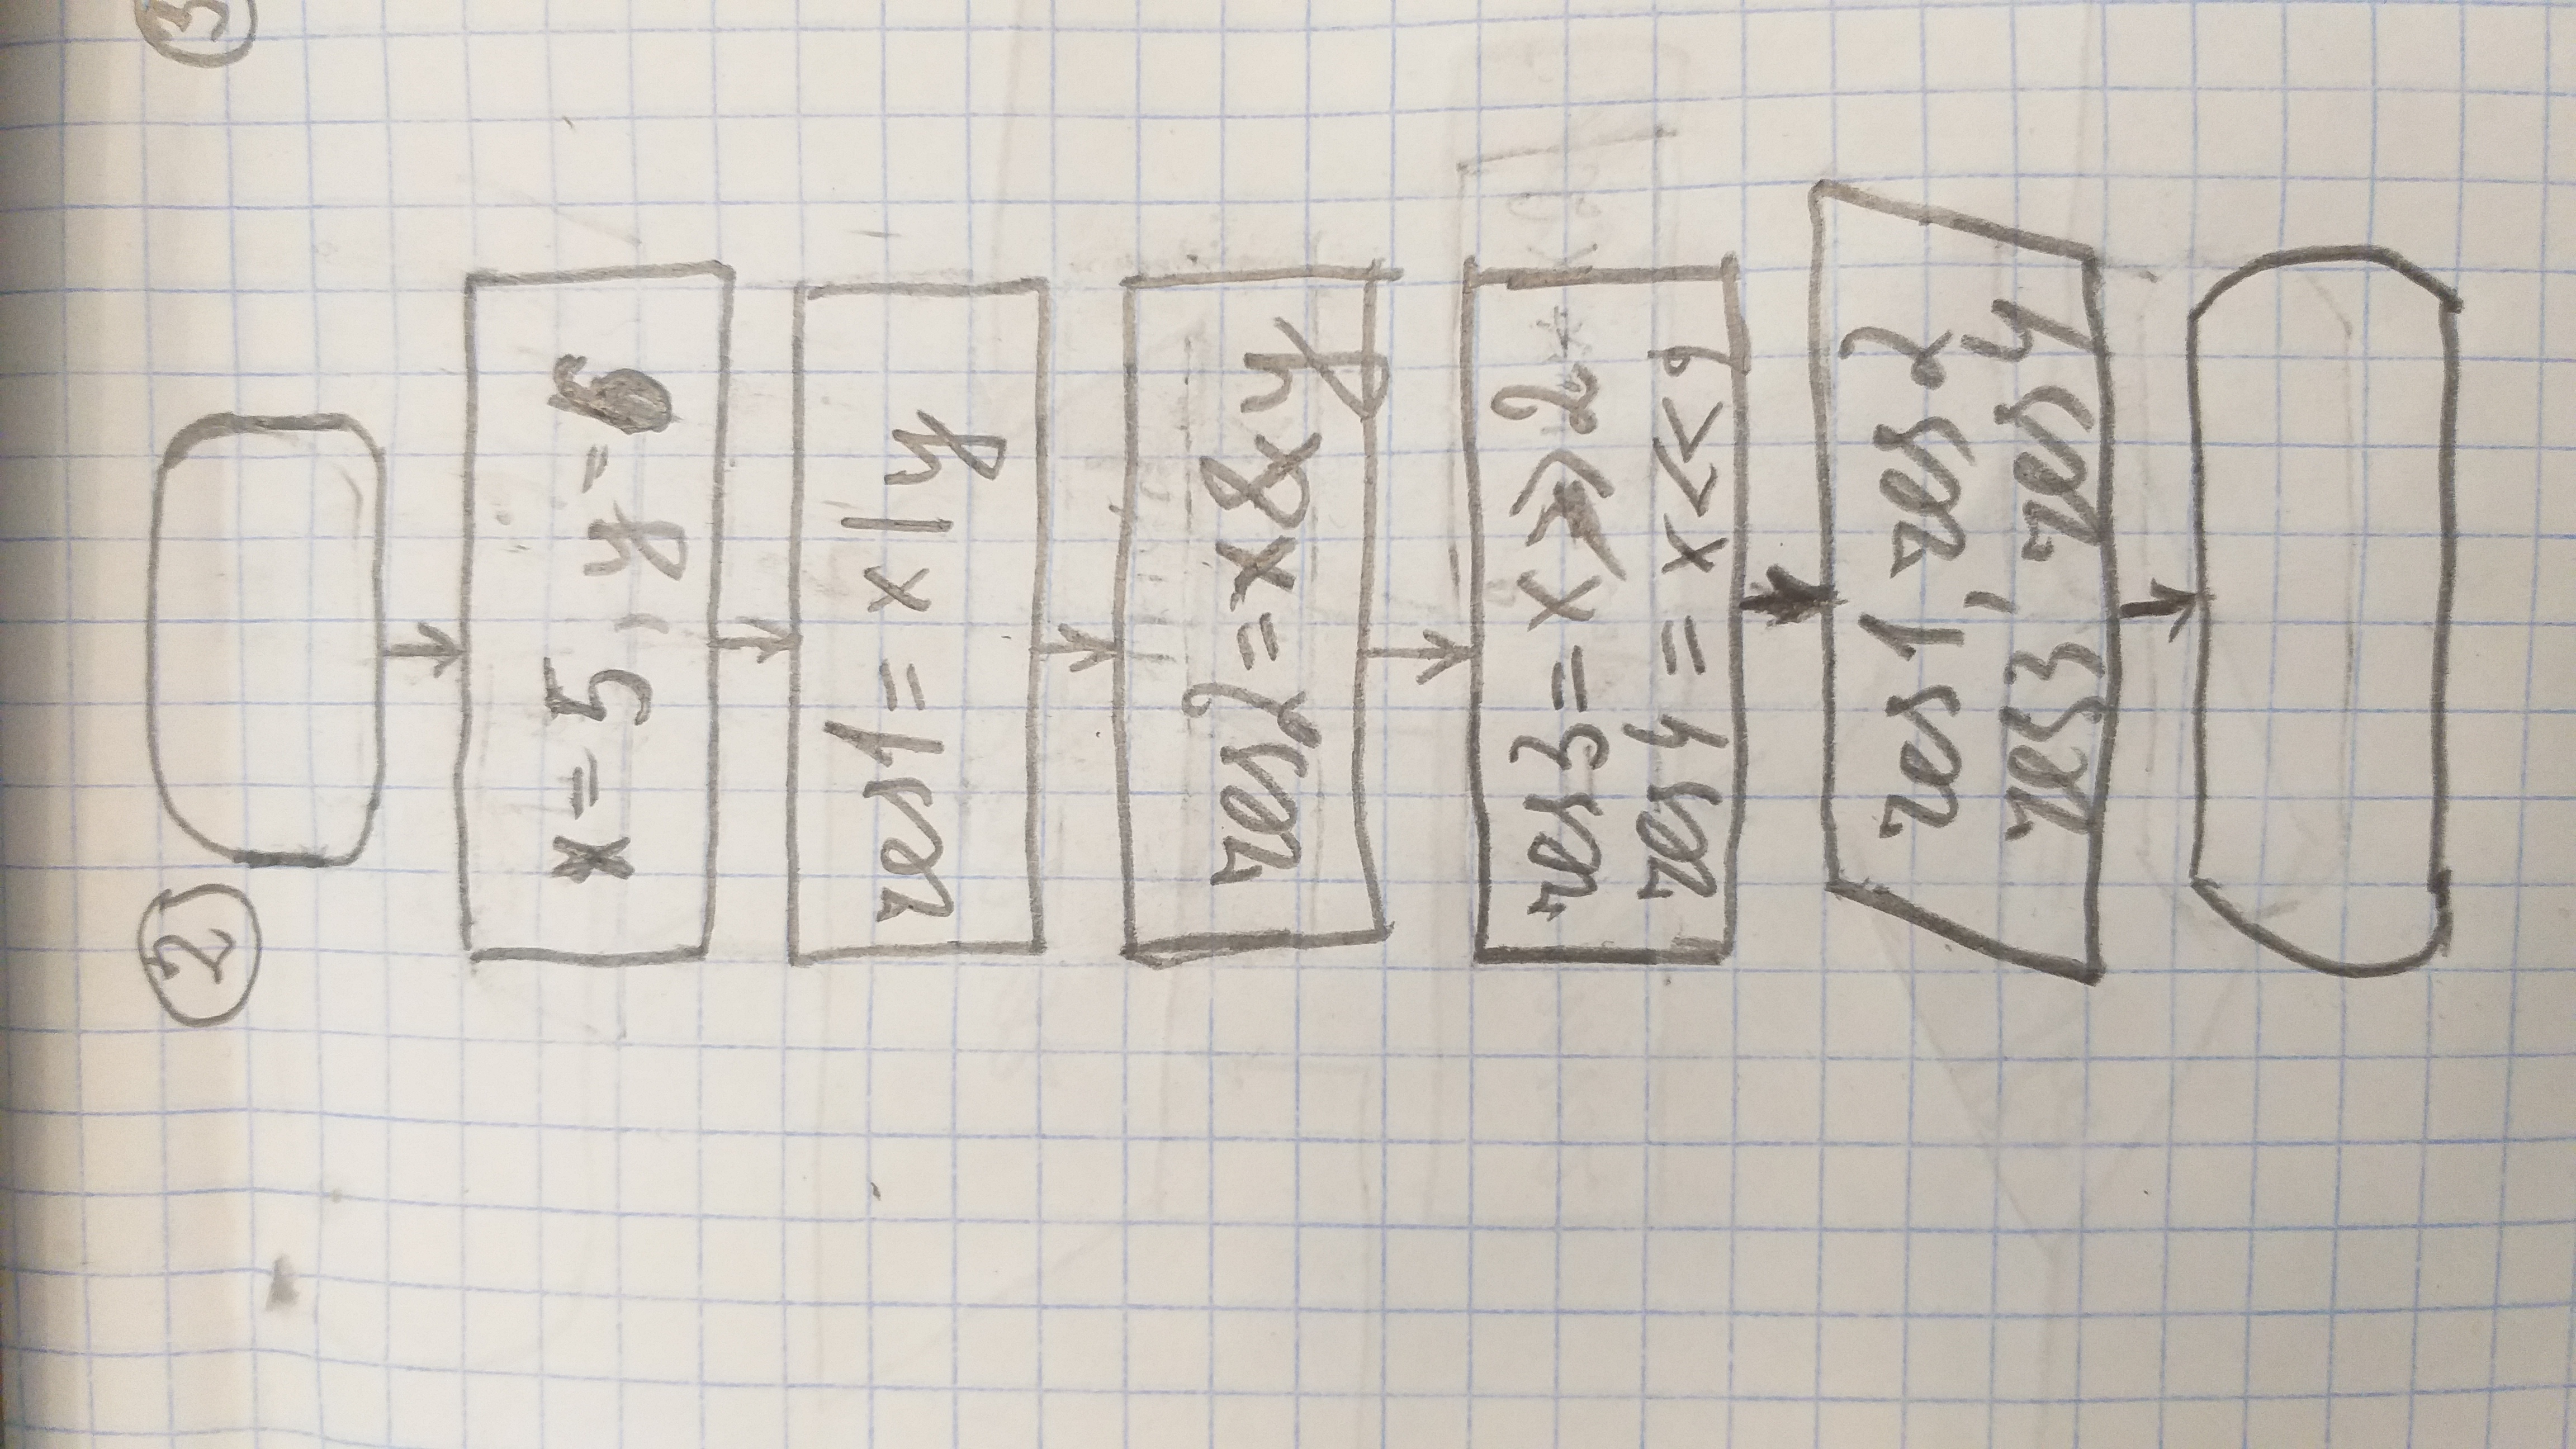 2
3
x = 5, y = 6
res1 = x | y
res2 = x & y
res3 = x >> 2
res4 = x << 2
res1, res2
res3, res4